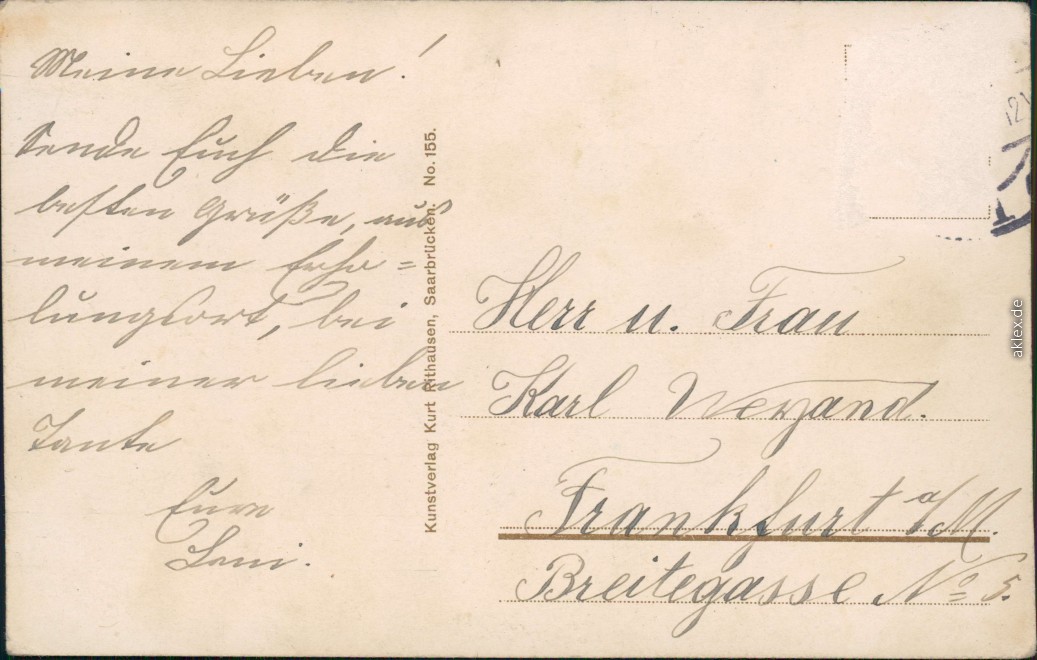 Meine Lieben!
Sende Euch die
besten Grüße, aus
meinem Erho=
lungsort, bei
meiner lieben
Tante
Eure
Leni.
Kunstverlag Kurt Rithausen, Saarbrücken. No. 155.
Herr u. Frau
Karl
Frankfurt a/M.
Breitegasse No 5.
12
aklex.de